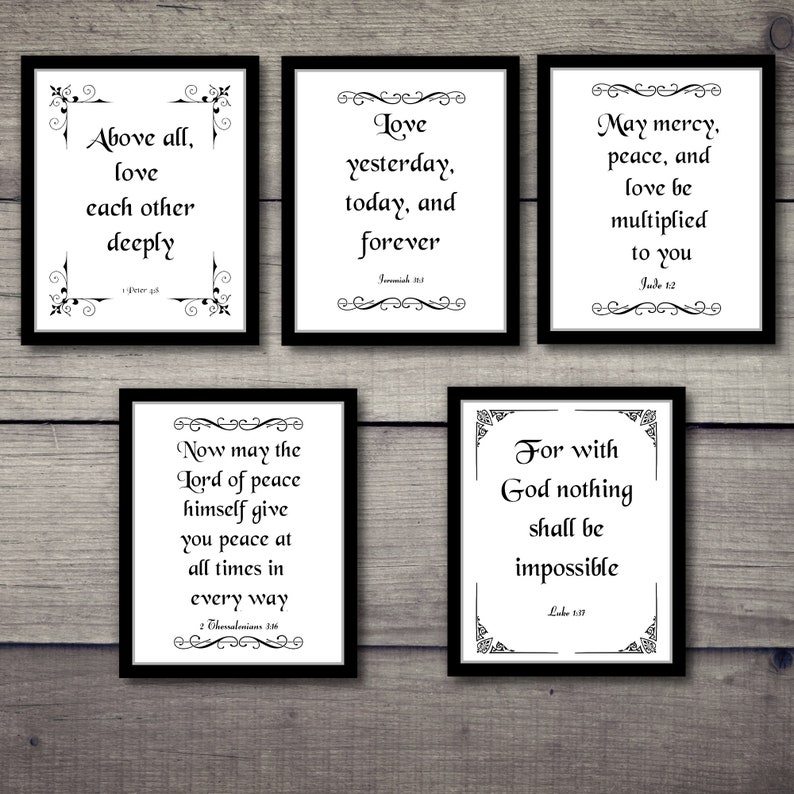 Above all,
love
each other
deeply
1 Peter 4:8
Love
yesterday,
today, and
forever
Jeremiah 31:3
May mercy,
peace, and
love be
multiplied
to you
Jude 1:2
Now may the
Lord of peace
himself give
you peace at
all times in
every way
2 Thessalonians 3:16
For with
God nothing
shall be
impossible
Luke 1:37